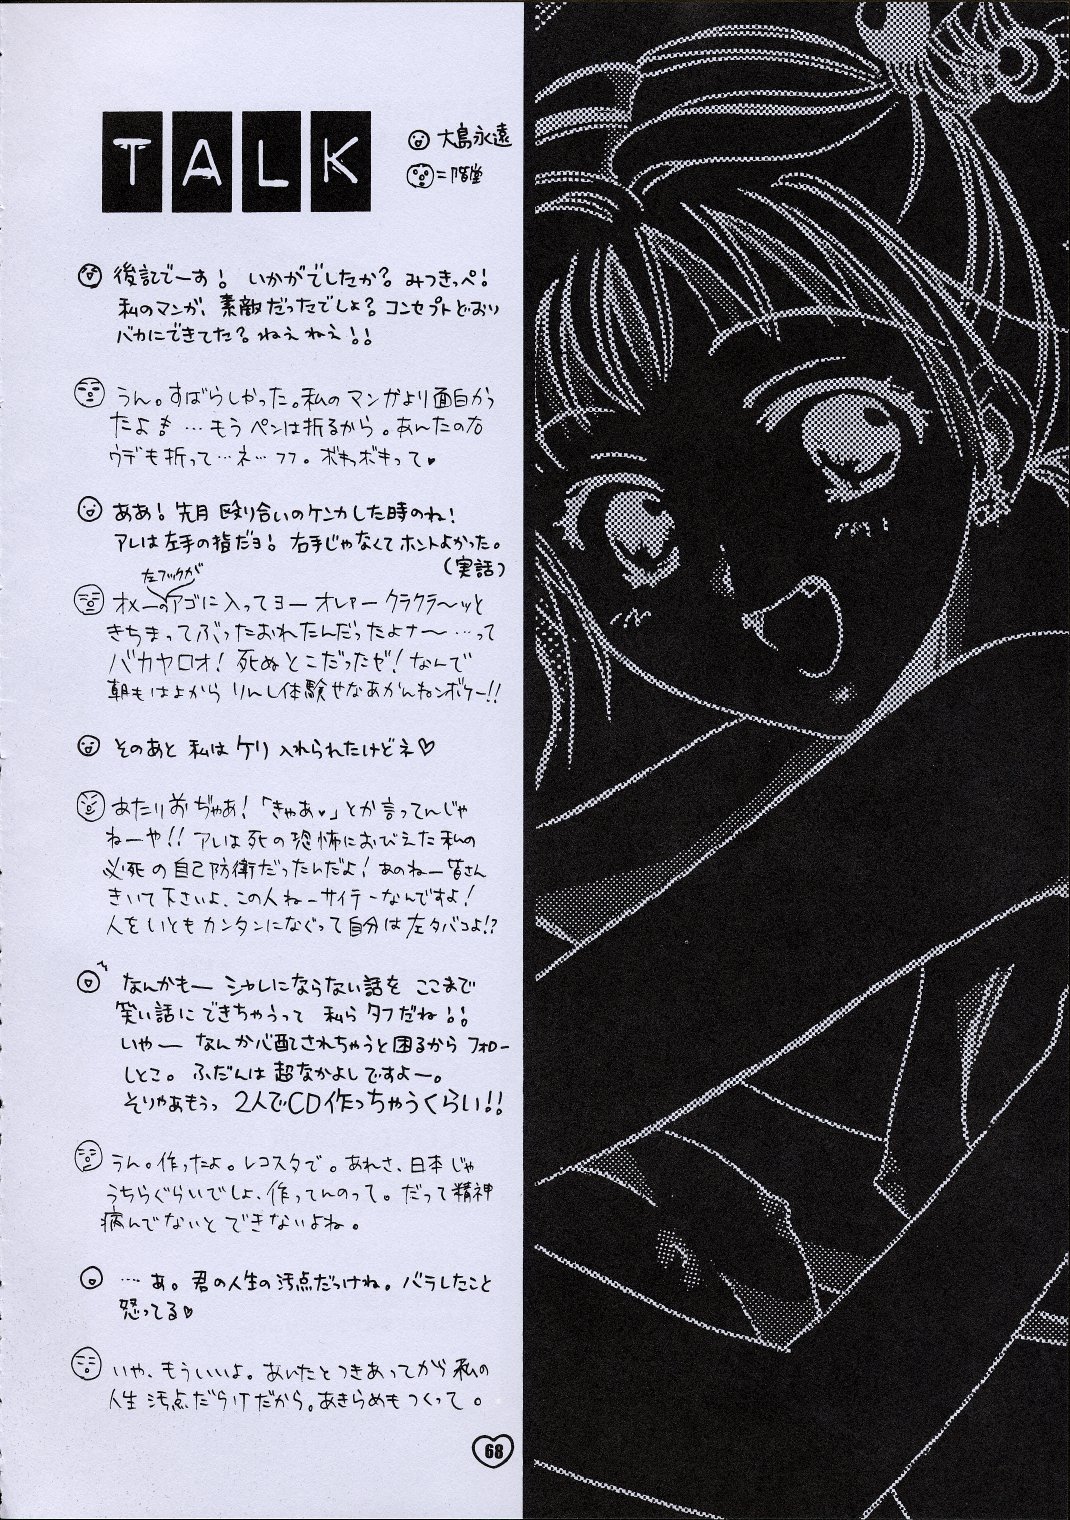 TALK
大島永遠
=階堂
後記でーす! いかがでしたか? みつきっぺ!
私のマンガ、素敵だったでしょ? コンセプトどおり
バカにできてた? ねえ ねえ!!
うん。すばらしかった。私のマンガより面白かっ
たよ …もうペンは折るから。あんたの右
ウデも折って…ネ…フフ。ボキボキって♥
ああ! 先月 殴り合いのケンカした時のね!
アレは左手の指だヨ! 右手じゃなくてホントよかった。
(実話)
左フックが
オメーのアゴに入ってヨー オレァー クラクラ〜ッと
きちまってぶったおれたんだったよナ〜…って
バカヤロオ! 死ぬとこだったぜ! なんで
朝もはよから りんし体験せなあかんねンボケー!!
そのあと 私は ケリ 入れられたけどネ♡
あたりまおぢゃあ! 「きゃあ♥」とか言ってんじゃ
ねーや!! アレは死の恐怖におびえた私の
必死の自己防衛だったんだよ! あのねー皆さん
きいて下さいよ、この人ねーサイテーなんですよ!
人をいともカンタンになぐって自分は左タバコよ!?
なんかもー シャレにならない話を ここまで
笑い話に できちゃうって 私ら タフだね!!
いやー なんか心配されちゃうと困るから フォロー
しとこ。 ふだんは 超なかよしですよー。
そりゃあもうっ 2人でCD作っちゃうくらい!!
うん。作ったよ。レコスタで。あれさ、日本じゃ
うちらぐらいでしょ、作ってんのって。だって精神
病んでないと できないよね。
… あ。君の人生の汚点だっけね。バラしたこと
怒ってる♡
いや、もういいよ。あんたとつきあってから 私の
人生 汚点だらけだから。あきらめもつくって。
68